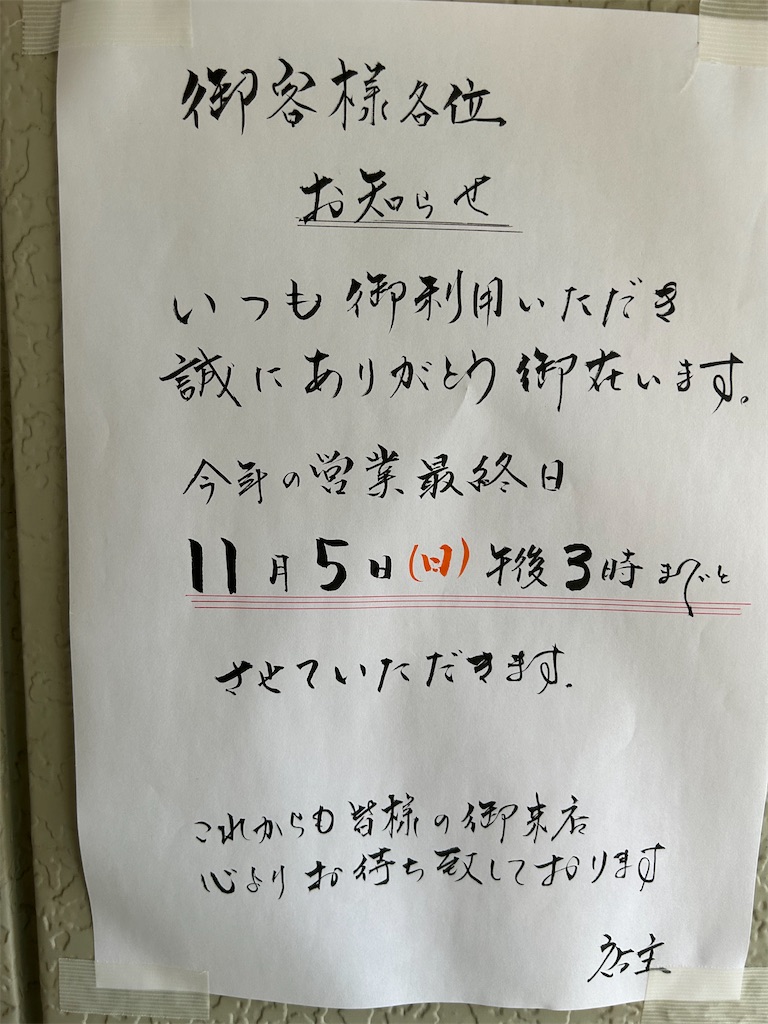 御客様各位
お知らせ
いつも御利用いただき
誠にありがとう御在います。
今年の営業最終日
11月5日(日)午後3時までと
させていただきます.
これからも皆様の御来店
心よりお待ち致しております
店主